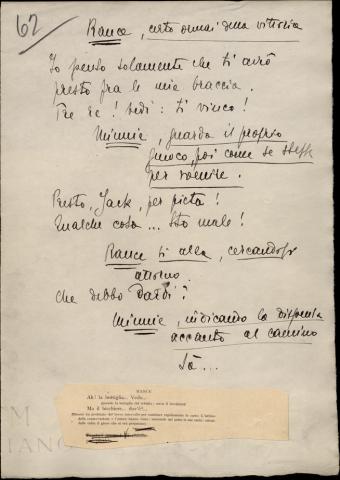 62
Rance, certo ormai della vittoria
Io penso solamente che ti avrò
presto fra le mie braccia.
Tre re! Vedi: ti vinco!
Minnie, guarda il proprio
giuoco, poi come se stesse
per svenire.
Presto, Jack, per pietà!
Qualche cosa... Sto male!
Rance si alza, cercando
attorno.
Che debbo darvi?
Minnie, indicando la dispensa
accanto al camino
Là...
RANCE
Ah! la bottiglia... Vedo...
Ma il bicchiere... dov'è?...